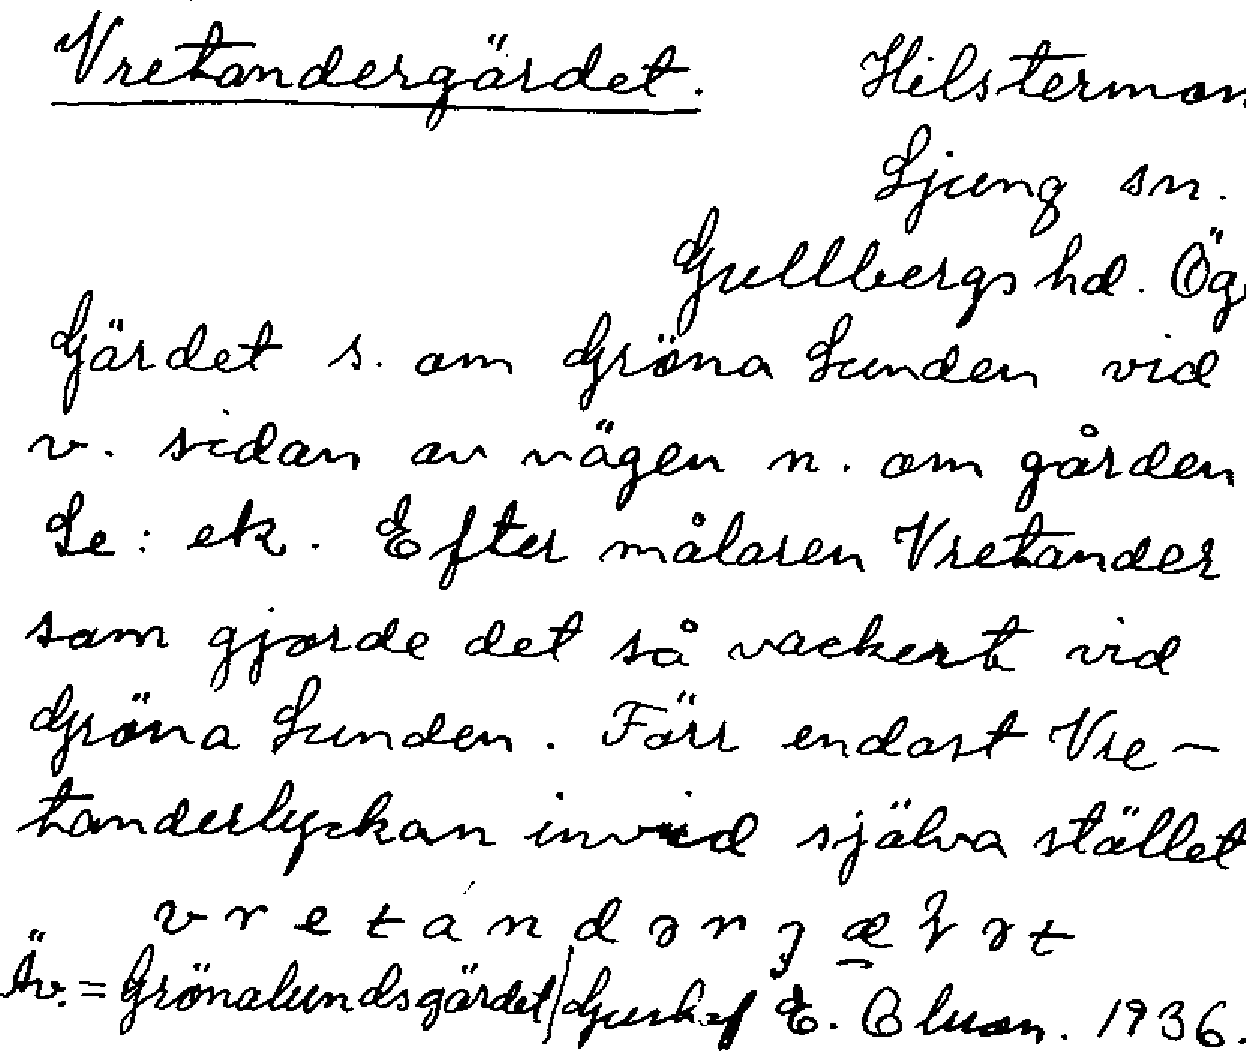 Vretandergärdet. Hilsterman
Ljung sn.
Gullbergs hd. Ög.
Gärdet s. om Gröna Lunden vid
v. sidan av vägen n. om gården
Se: ek. Efter målaren Vretander
som gjorde det så vackert vid
Gröna Lunden. Förr endast Vre-
tanderlyckan invid själva stället
v r e t á n d ə r
Äv. = Grönalundsgärdet / E. 1936.